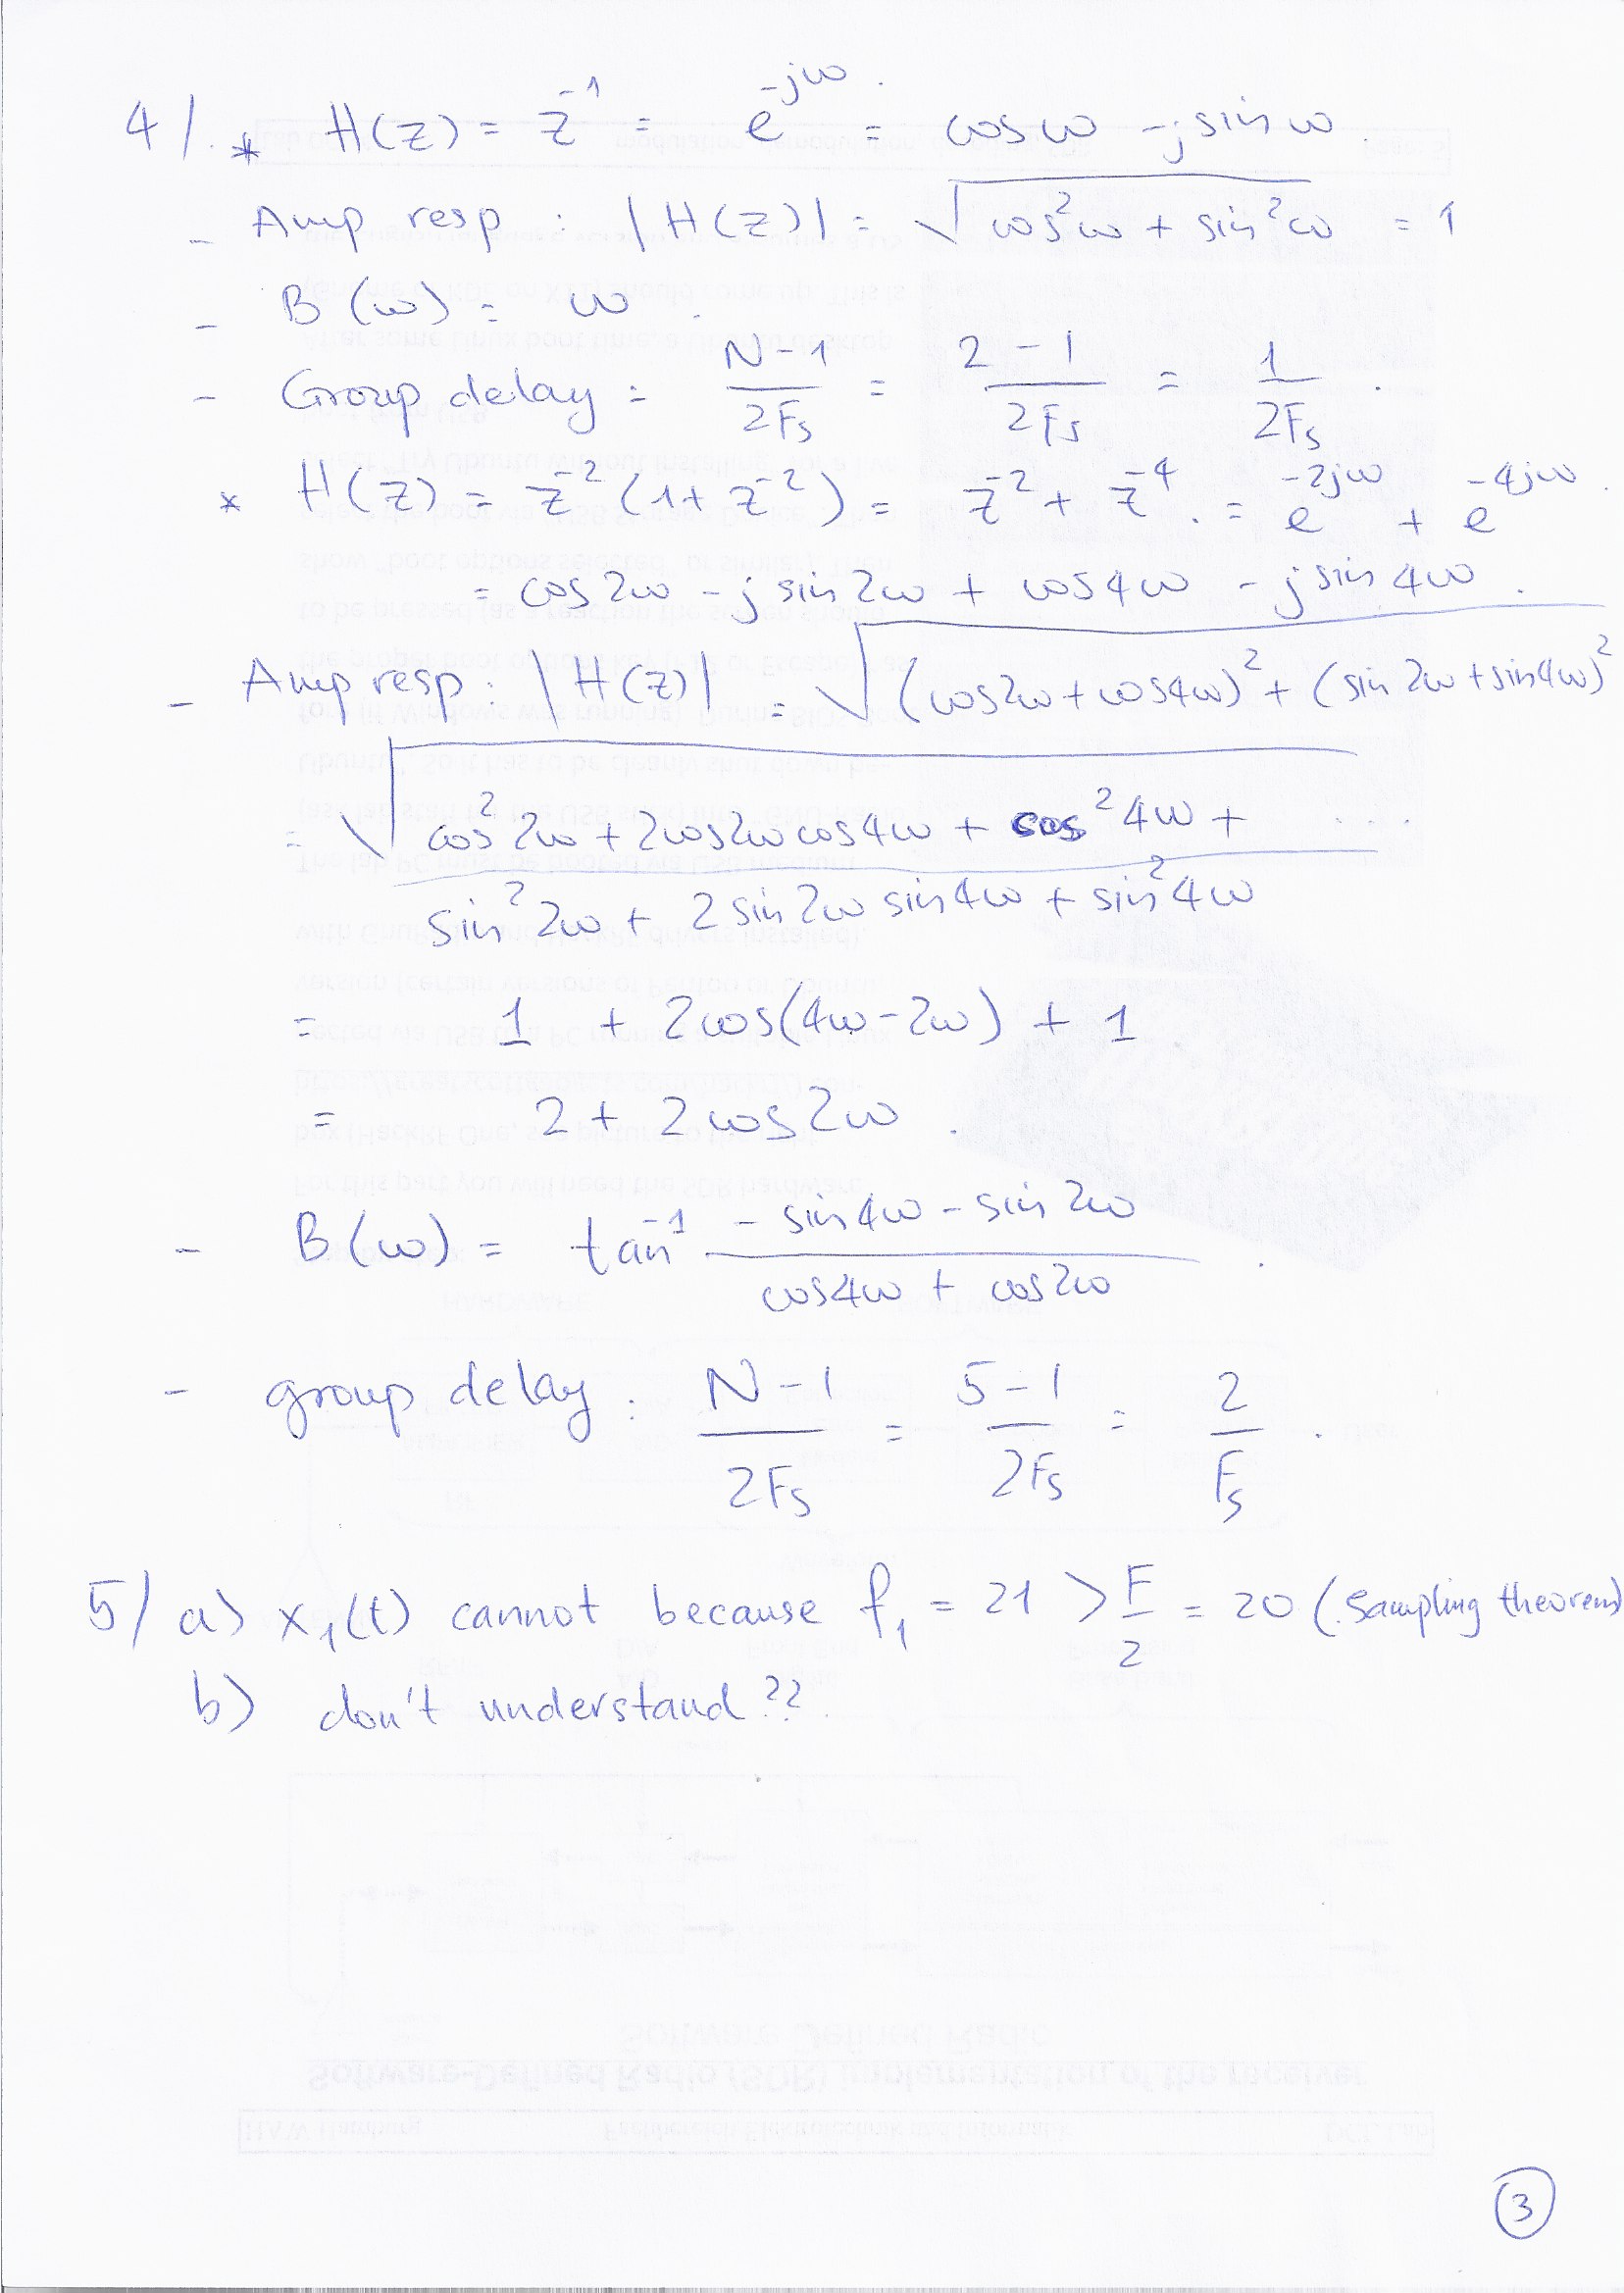 4/. * H(z) = z^-1 = e^-jω = cosω - jsinω.
- Amp resp : |H(z)| = √(cos²ω + sin²ω) = 1
- B(ω) = ω.
- Group delay = (N-1)/(2Fs) = (2-1)/(2Fs) = 1/(2Fs).
* H(z) = z^-2 (1 + z^-2) = z^-2 + z^-4. = e^-2jω + e^-4jω.
= cos2ω - jsin2ω + cos4ω - jsin4ω.
- Amp resp : |H(z)| = √((cos2ω + cos4ω)² + (sin2ω + sin4ω)²)
= √(cos²2ω + 2cos2ωcos4ω + cos²4ω + ...
sin²2ω + 2sin2ωsin4ω + sin²4ω
= 1 + 2cos(4ω-2ω) + 1
= 2 + 2cos2ω.
- B(ω) = tan^-1 (-sin4ω - sin2ω)/(cos4ω + cos2ω).
- group delay : (N-1)/(2Fs) = (5-1)/(2Fs) = 2/Fs.
5/ a) x₁(t) cannot because f₁ = 21 > F/2 = 20 (Sampling theorem)
b) don't understand??
3